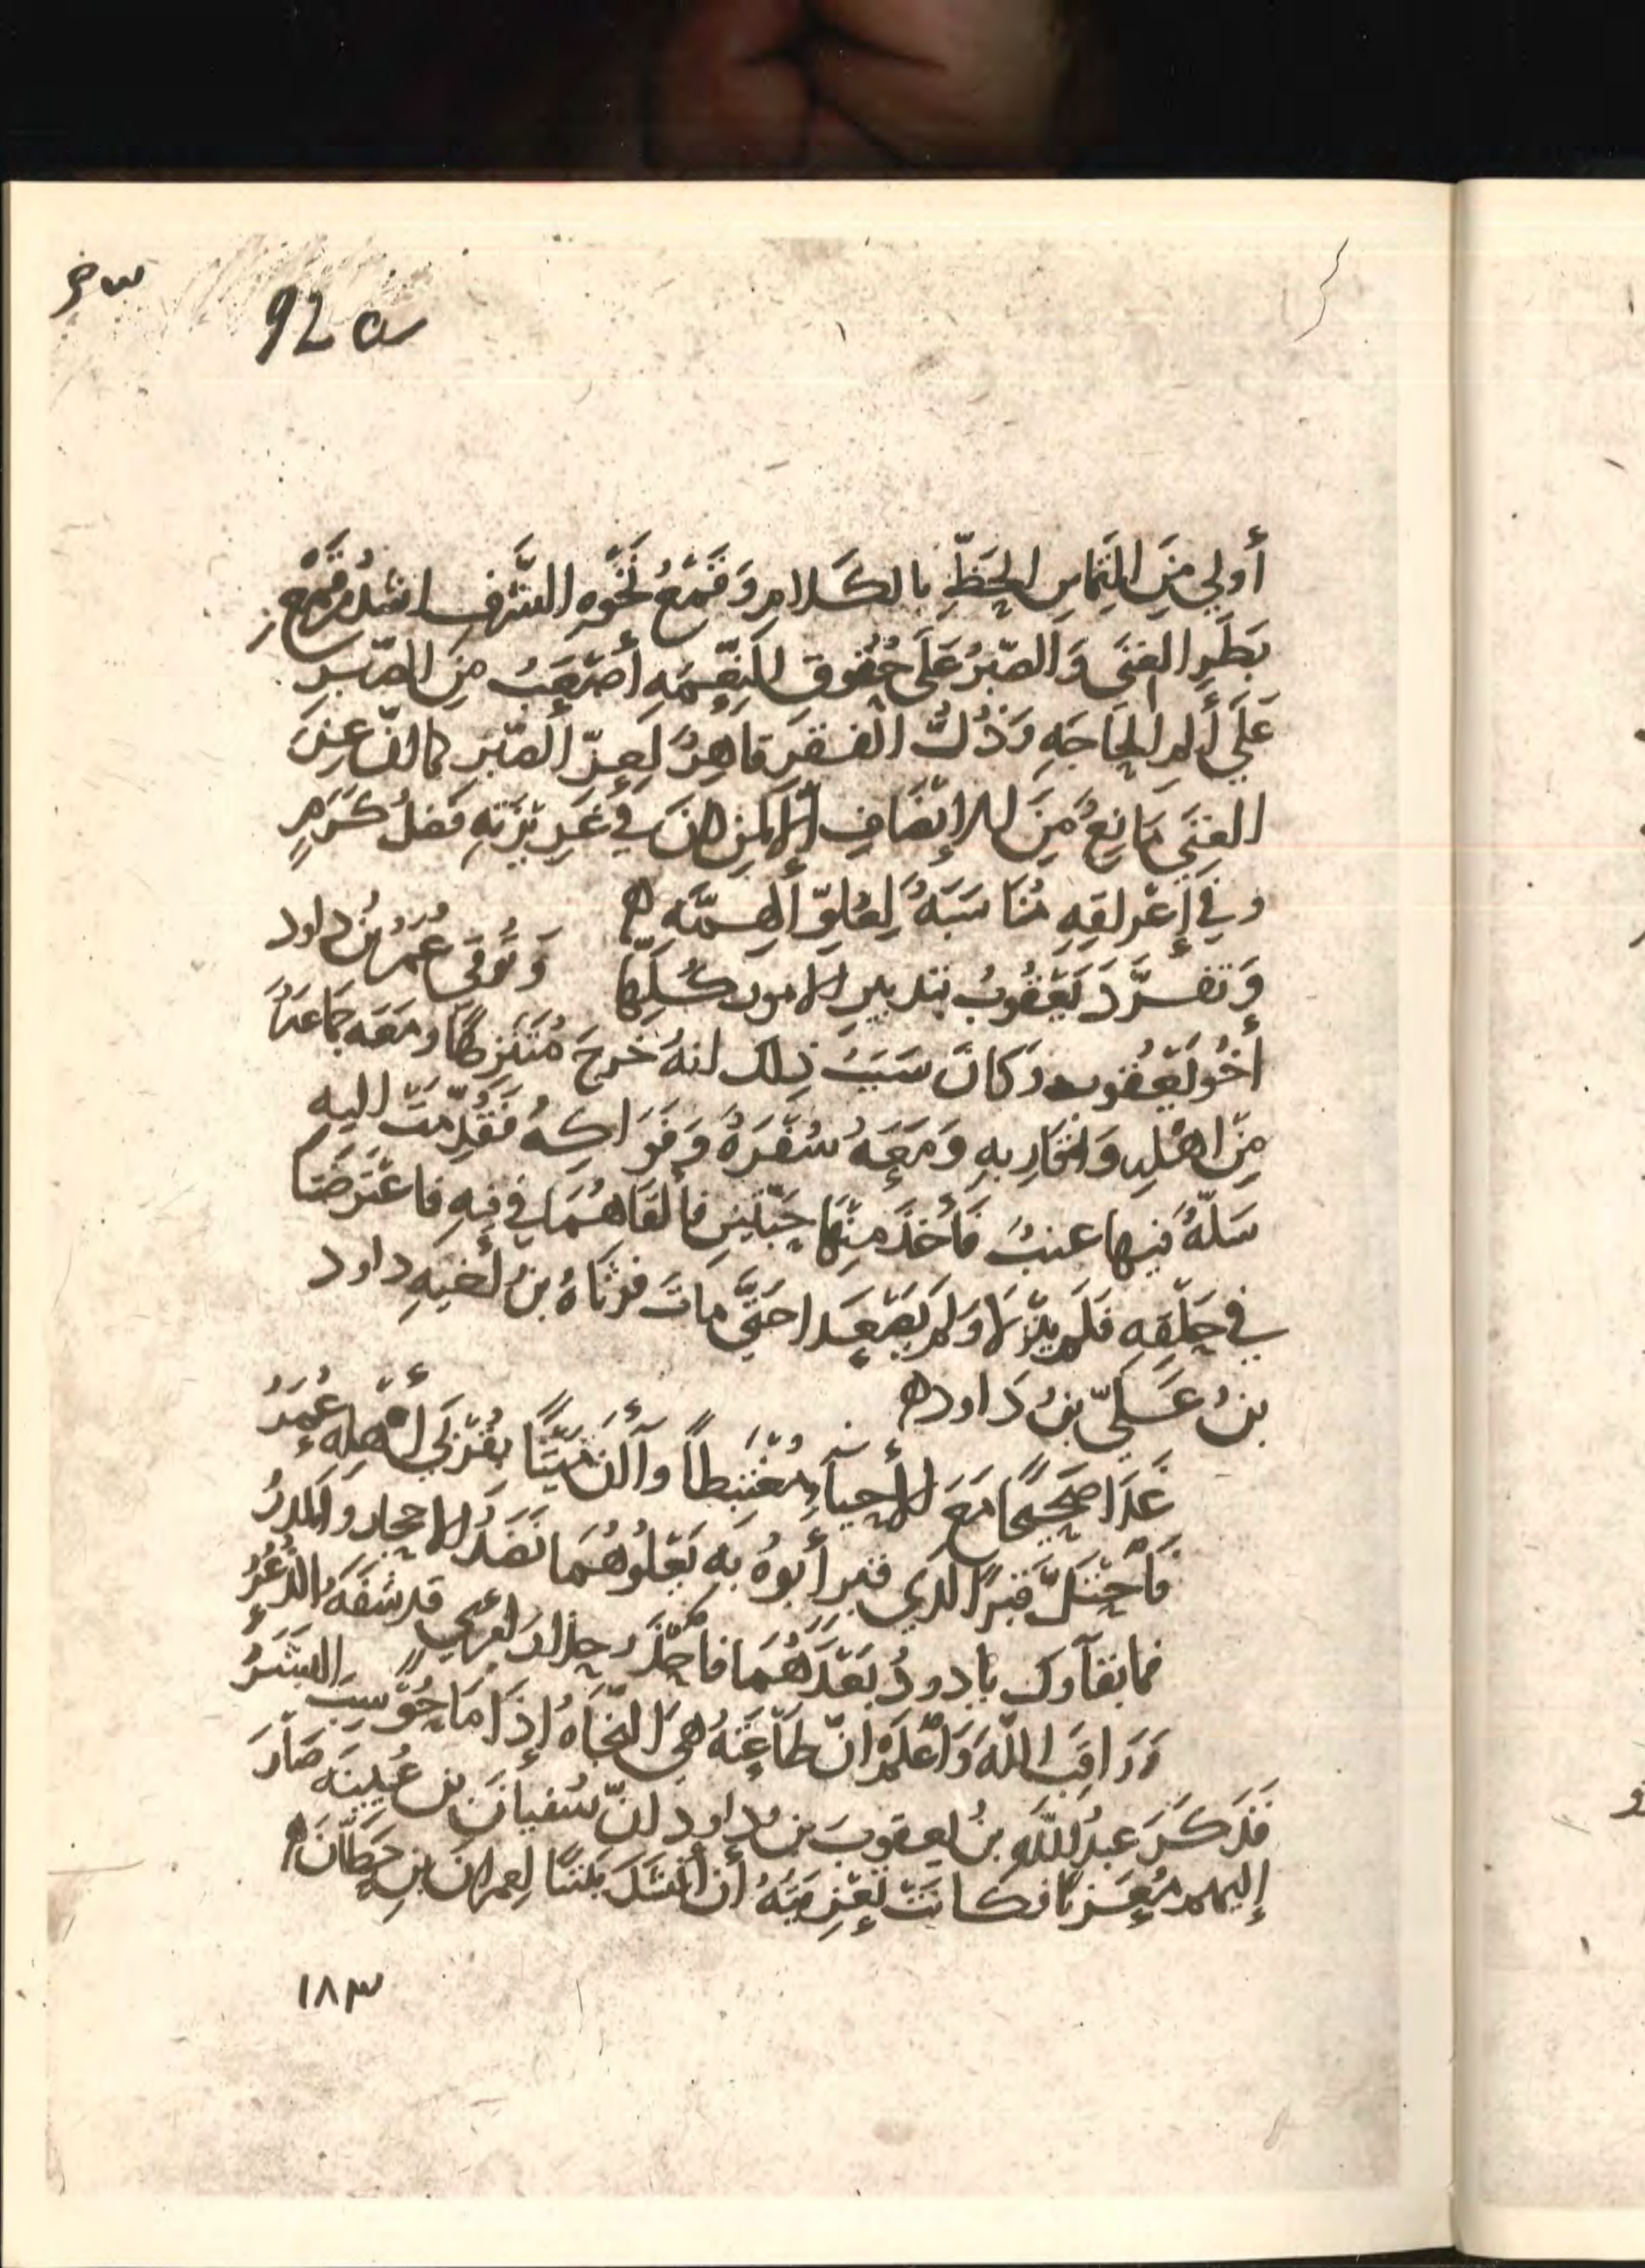 92a
أَولي مِنَ التِماسِ الحَظِّ بالكَلامِ وَقَمْعُ نَخْوَهِ الشَّرَفِ اشدُّ من قَمْعِ
بَطَرِ الغِنَى وَالصّبْرُ عَلَى حُقُوقِ النِعْمَهِ أَصْعَبُ مِنَ الصّبرِ
عَلَى أَلَمِ الحَاجَهِ وَذُلُّ الفَقرِ قاهِرٌ لِعِزّ الصّبْرِ كما انّ عِزّ
الغِنَى مَانِعٌ مِنَ الإنْصَافِ إلّا لمن كانَ في غَرِيْزَتِهِ فَضلُ كَرَمٍ
وفي أَعْراقِهِ مُنَاسَبَهٌ لِعُلوّ الهِمّه ه
وَتفرَّدَ يَعْقُوبُ بتدبيرِ الامور كُلِّها وَتُوفى عُمَرُ بنُ داود
أَخُو يَعْقُوب وَكانَ سَبَبُ ذلك انهُ خَرجَ مُتَنَزِهًا ومَعَه جَمَاعَهٌ
مِنْ اهْلِهِ وَاقَارِبهِ وَمَعَهُ سُفْرَهٌ وَفَوَاكِهُ فَقُدِّمَتْ اليهِ
سَلّهٌ فيها عنبٌ فَأَخذَ مِنْها حَبّتَينِ فَأَلقَاهُمَا في فِيهِ فاعْتَرضَتا
في حَلْقِهِ فَلَم يَنْزِلا وَلم يَصْعَدا حَتَّى ماتَ فرثَاهُ بنُ أَخيهِ داود
بنُ عَليّ بنُ دَاوده
غَدَا صَحِيحًا مَعَ الأَحيآءِ مُغْتَبِطًا وَآلآنَ مَيّتًا بقُرْبَى أَهْلِهِ عُمَرُ
فَأحْتَلَّ قَبرًا الذي قبر أَبُوهُ بهِ يَعْلُوهُمَا نَضَدُ الاحجار وَالمَدرُ
فما بقآوك يا دودُ بَعْدَهُمَا فاحْذَر حِذارَ امرئٍ قد شَفّهُ الذُّعُرُ
وَرَاقِبِ اللّهَ وَاعْلَمْ انّ طَاعَتَهُ هي النّجَاهُ إِذَا مَا حُوسِبَ البَشَرُ
فَذَكَرَ عبدُ اللّهِ بنُ يعقوبَ بنِ داود انّ سُفيانَ بن عُيَينَه صَارَ
إليهم مُعَزيًا فكانَتْ تَعْزِيَتهُ أن أَنْشَدَ بَيْتًا لِعمرانَ بنِ حِطّانَ ه
١٨٣